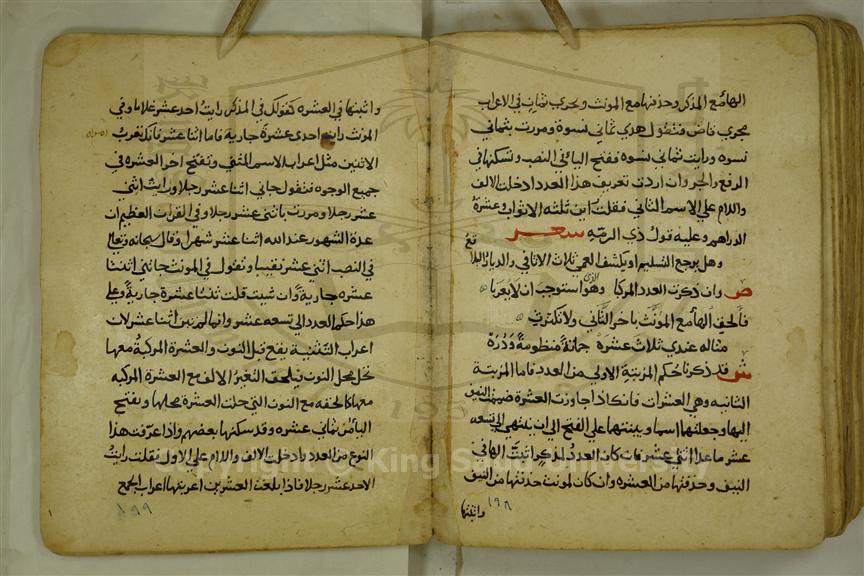 الهامع المذكر وحذفها مع المونث ويجري ثماني في الاعراب
مجري قاض فتقول هذي ثماني نسوة ومررت بثماني
نسوه ورايت ثماني نسوه وتفتح اليا في النصب وتسكنها في
الرفع والجر وان اردت تعريف هذا العدد ادخلت الالف
واللام علي الاسم الثاني فقلت اين ثلثه الاثواب وعشرة
الدراهم وعليه قول ذي الرمه شعر
وهل يرجع التسليم او يكشف العمي ثلاث الاثافي والديار البلاقع
ص وان ذكرت العدد المركبا وهو الذي استوجب ان لا يعربا
فالحق الهامع المونث باخر الثاني ولا تكترث
مثاله عندي ثلاث عشرة جمانة منظومة ودرة
ش قد ذكرنا حكم المرتبة الاولي من العدد فاما المرتبة
الثانيه وهي العشرات فانك اذا جاوزت العشرة ضممت النيف
اليها وجعلتهما اسما وبنيتهما علي الفتح الي ان ينتهي الي تسعه
عشر ماعدا اثني عشر فان كان العدد لمذكر اثبت الها في
النيف وحذفتها من العشره وان كان لمونث حذفتها من النيف
واثبتها
١٩٨
واثبتها في العشره كقولك في المذكر رايت احد عشر غلاما وفي
المونث رايت احدي عشرة جارية فاما اثنا عشر فانك تعرب
الاثنين مثل اعراب الاسم المثني وتفتح اخر العشره في
جميع الوجوه فتقول جاني اثنا عشر رجلا ورايت اثني
عشر رجلا ومررت باثني عشر رجلا وفي القران العظيم ان
عدة الشهور عند الله اثنا عشر شهرا وقال سبحانه وتعالي
في النصب اثني عشر نقيبا وتقول في المونث جاتني اثنتا
عشره جارية وان شيت قلت ثنتا عشرة جارية وعلي
هذا حكم العدد الي تسعه عشر وانما لم يبن اثنا عشر لان
اعراب التثنية يقع قبل النون والعشرة المركبة معها
تحل محل النون فيلحق التغير الالف مع العشرة المركبه
معها كالحقه مع النون التي حلت العشرة محلها وتفتح
اليا من ثماني عشره وقد سكنها بعضهم واذا عرفت هذا
النوع من العدد ادخلت الالف واللام علي الاول فقلت رايت
الاحد عشر رجلا فاذا بلغت العشرين اعربتها اعراب الجمع
١٩٩
Copyright © King Saud University